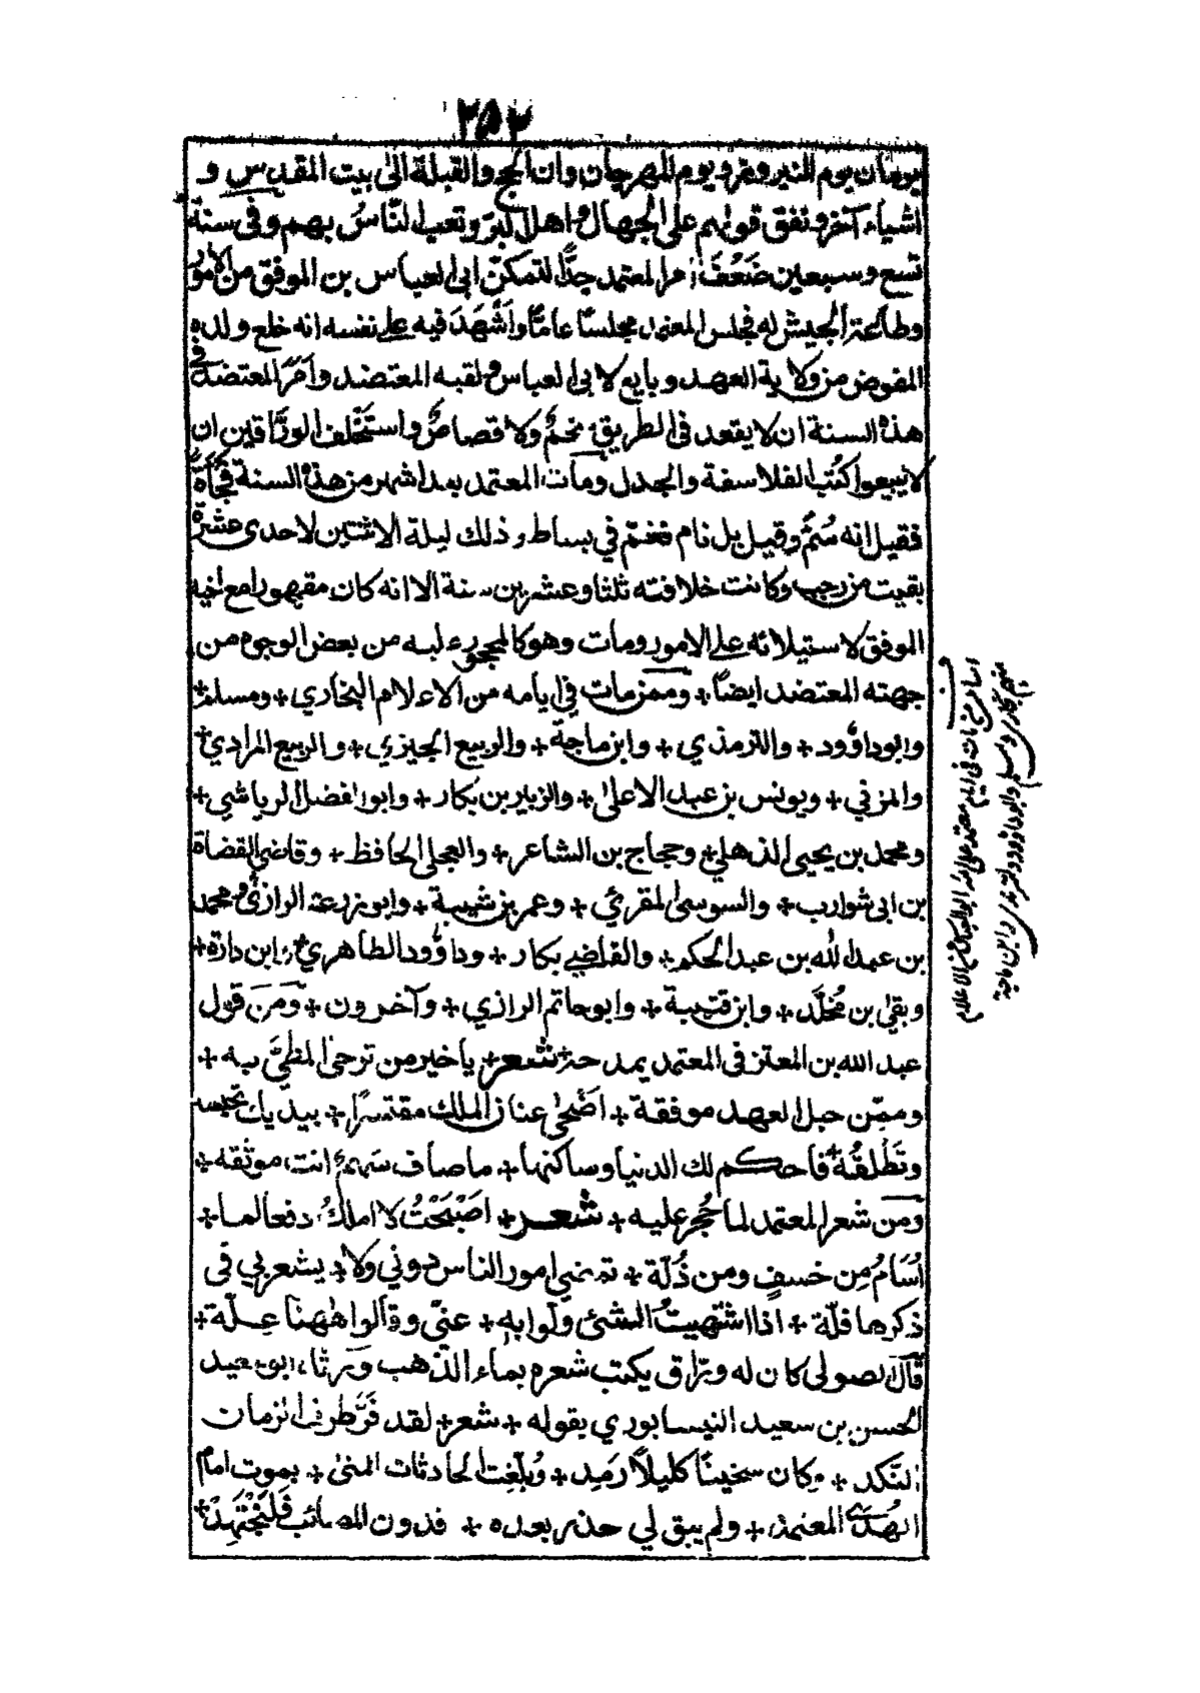 ٢٥٣
يومان يوم النيروز و يوم المهرجان وان الحج والقبلة الى بيت المقدس و
اشياء آخر ونفق قولهم على الجهال واهل البرّ وتعب الناسُ بهم وفى سنة
تسع وسبعين ضَعُفَ امر المعتمد جدًّا لتمكن ابى العباس بن الموفق من الامور
وطاعة الجيش له فجلس المعتمد مجلسًا عامًّا واَشْهَدَ فيه على نفسه انه خلع ولده
المفوض من ولاية العهد و بايع لابى العباس ولقبه المعتضد وامَرَ المعتضد فى
هذه السنة ان لا يقعد فى الطريق منجمٌ ولا قصاصٌ واستَحْلف الورّاقين ان
لا يبيعوا كُتب الفلاسفة والجدل ومات المعتمد بعد اشهر من هذه السنة فُجْأَةً
فقيل انه سُمَّ وقيل بل نام فغمّ في بساط وذلك ليلة الاثنين لاحدى عشرة
بقيت من رجب وكانت خلافته ثلثا وعشرين سنة الا انه كان مقهورا مع اخيه
الموفق لاستيلائه على الامور ومات وهو كالمحجور عليه من بعض الوجوه من
جهته المعتضد ايضًا + وممن مات فى ايامه من الاعلام البخاري + ومسلم +
وابوداؤد + والترمذي + وابن ماجة + والربيع الجيزي + والربيع المرادي +
والمزني + ويونس بن عبد الاعلى + والزبير بن بكار + وابو الفضل الرياشي +
ومحمد بن يحيى الذهلي + وحجاج بن الشاعر + والعجلى الحافظ + وقاضى القضاة
بن ابى شوارب + والسوسى المقرئي + وعمر بن شيبة + وابو زرعة الرازى + ومحمد
بن عبد الله بن عبد الحكم + والقاضي بكار + وداؤد الظاهري + وابن دارة +
وبقى بن مُخلّد + وابن قتيبة + وابو حاتم الرازي + وآخرون + ومن قول
عبد الله بن المعتز فى المعتمد يمدحه + شعر + ياخير من تزجى المطىّ به +
وممّن حبل العهد موفقة + اَضْحىٰ عنان الملك مقتسرًا + بيديك تحبسه
وتَطْلقُهُ + فاحكم لك الدنيا وساكنها + ماصاف سهمٌ انت موثقه +
ومن شعر المعتمد لما حُجِرَ عليه + شعر + اَصْبَحْتُ لا املكُ دفعا لما +
اُسَامُ مِن خسفٍ ومن ذُلّة + تمضي امور الناس دوني ولا + يشعر بي فى
ذكرها قلّة + اذا اشْتَهيتُ الشئ ولوا به + عنّى وقالوا هٰهنا عِلّة +
قال الصولى كان له ورّاق يكتب شعره بماء الذهب ورثاه ابو سعيد
الحسن بن سعيد النيسابوري بقوله + شعر + لقد قَرَّ طرف الزمان
النّكد + وكان سخينًا كليلاً رَمِد + وبُلِّغتِ الحادثات المنىٰ + بموت امام
الهُدىٰ المعتمد + ولم يبق لي حذر بعده + فدون المصائب فَلتَجْتَهِدْ +
اسامى من مات فى ايام معتمد على الله ابو العباس من الاعلام
منهم بخارى ومسلم وابوداؤد وترمذى وابن ماجة